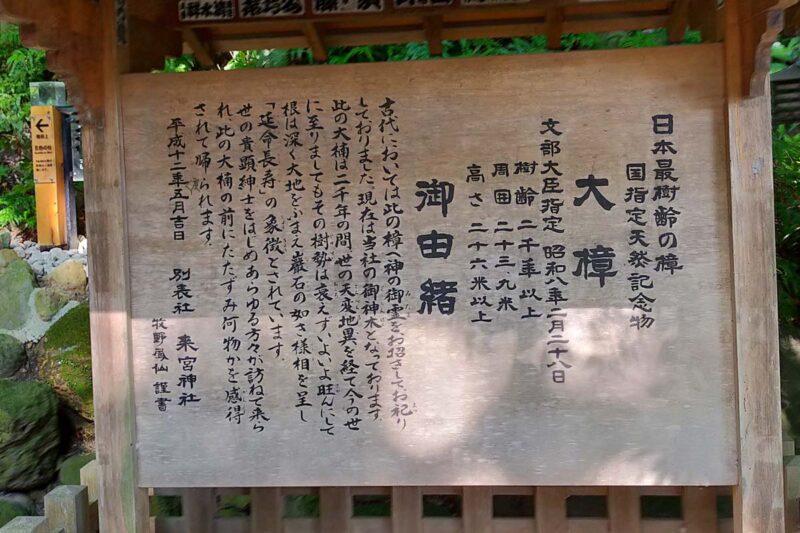 日本最樹齢の樟
国指定天然記念物
大樟
文部大臣指定 昭和八年二月二十八日
樹齢 二千年以上
周囲 二十三、九米
高さ 二十六米以上
御由緒
古代においては此の樟へ神の御霊をお招きしてお祀り
しておりました、現在は当社の御神木となっております。
此の大楠は二千年の間、世の天変地異を経て今の世
に至りましてもその樹勢は衰えずいよいよ旺んにして
根は深く大地をふまえ巌石の如き様相を呈し
「延命長寿」の象徴とされています。
世の貴顕紳士をはじめあらゆる方々が訪ねて来ら
れ、此の大楠の前にたたずみ何物かを感得
されて帰られます。
平成十二年五月吉日 別表社 来宮神社
牧野 仙 謹書